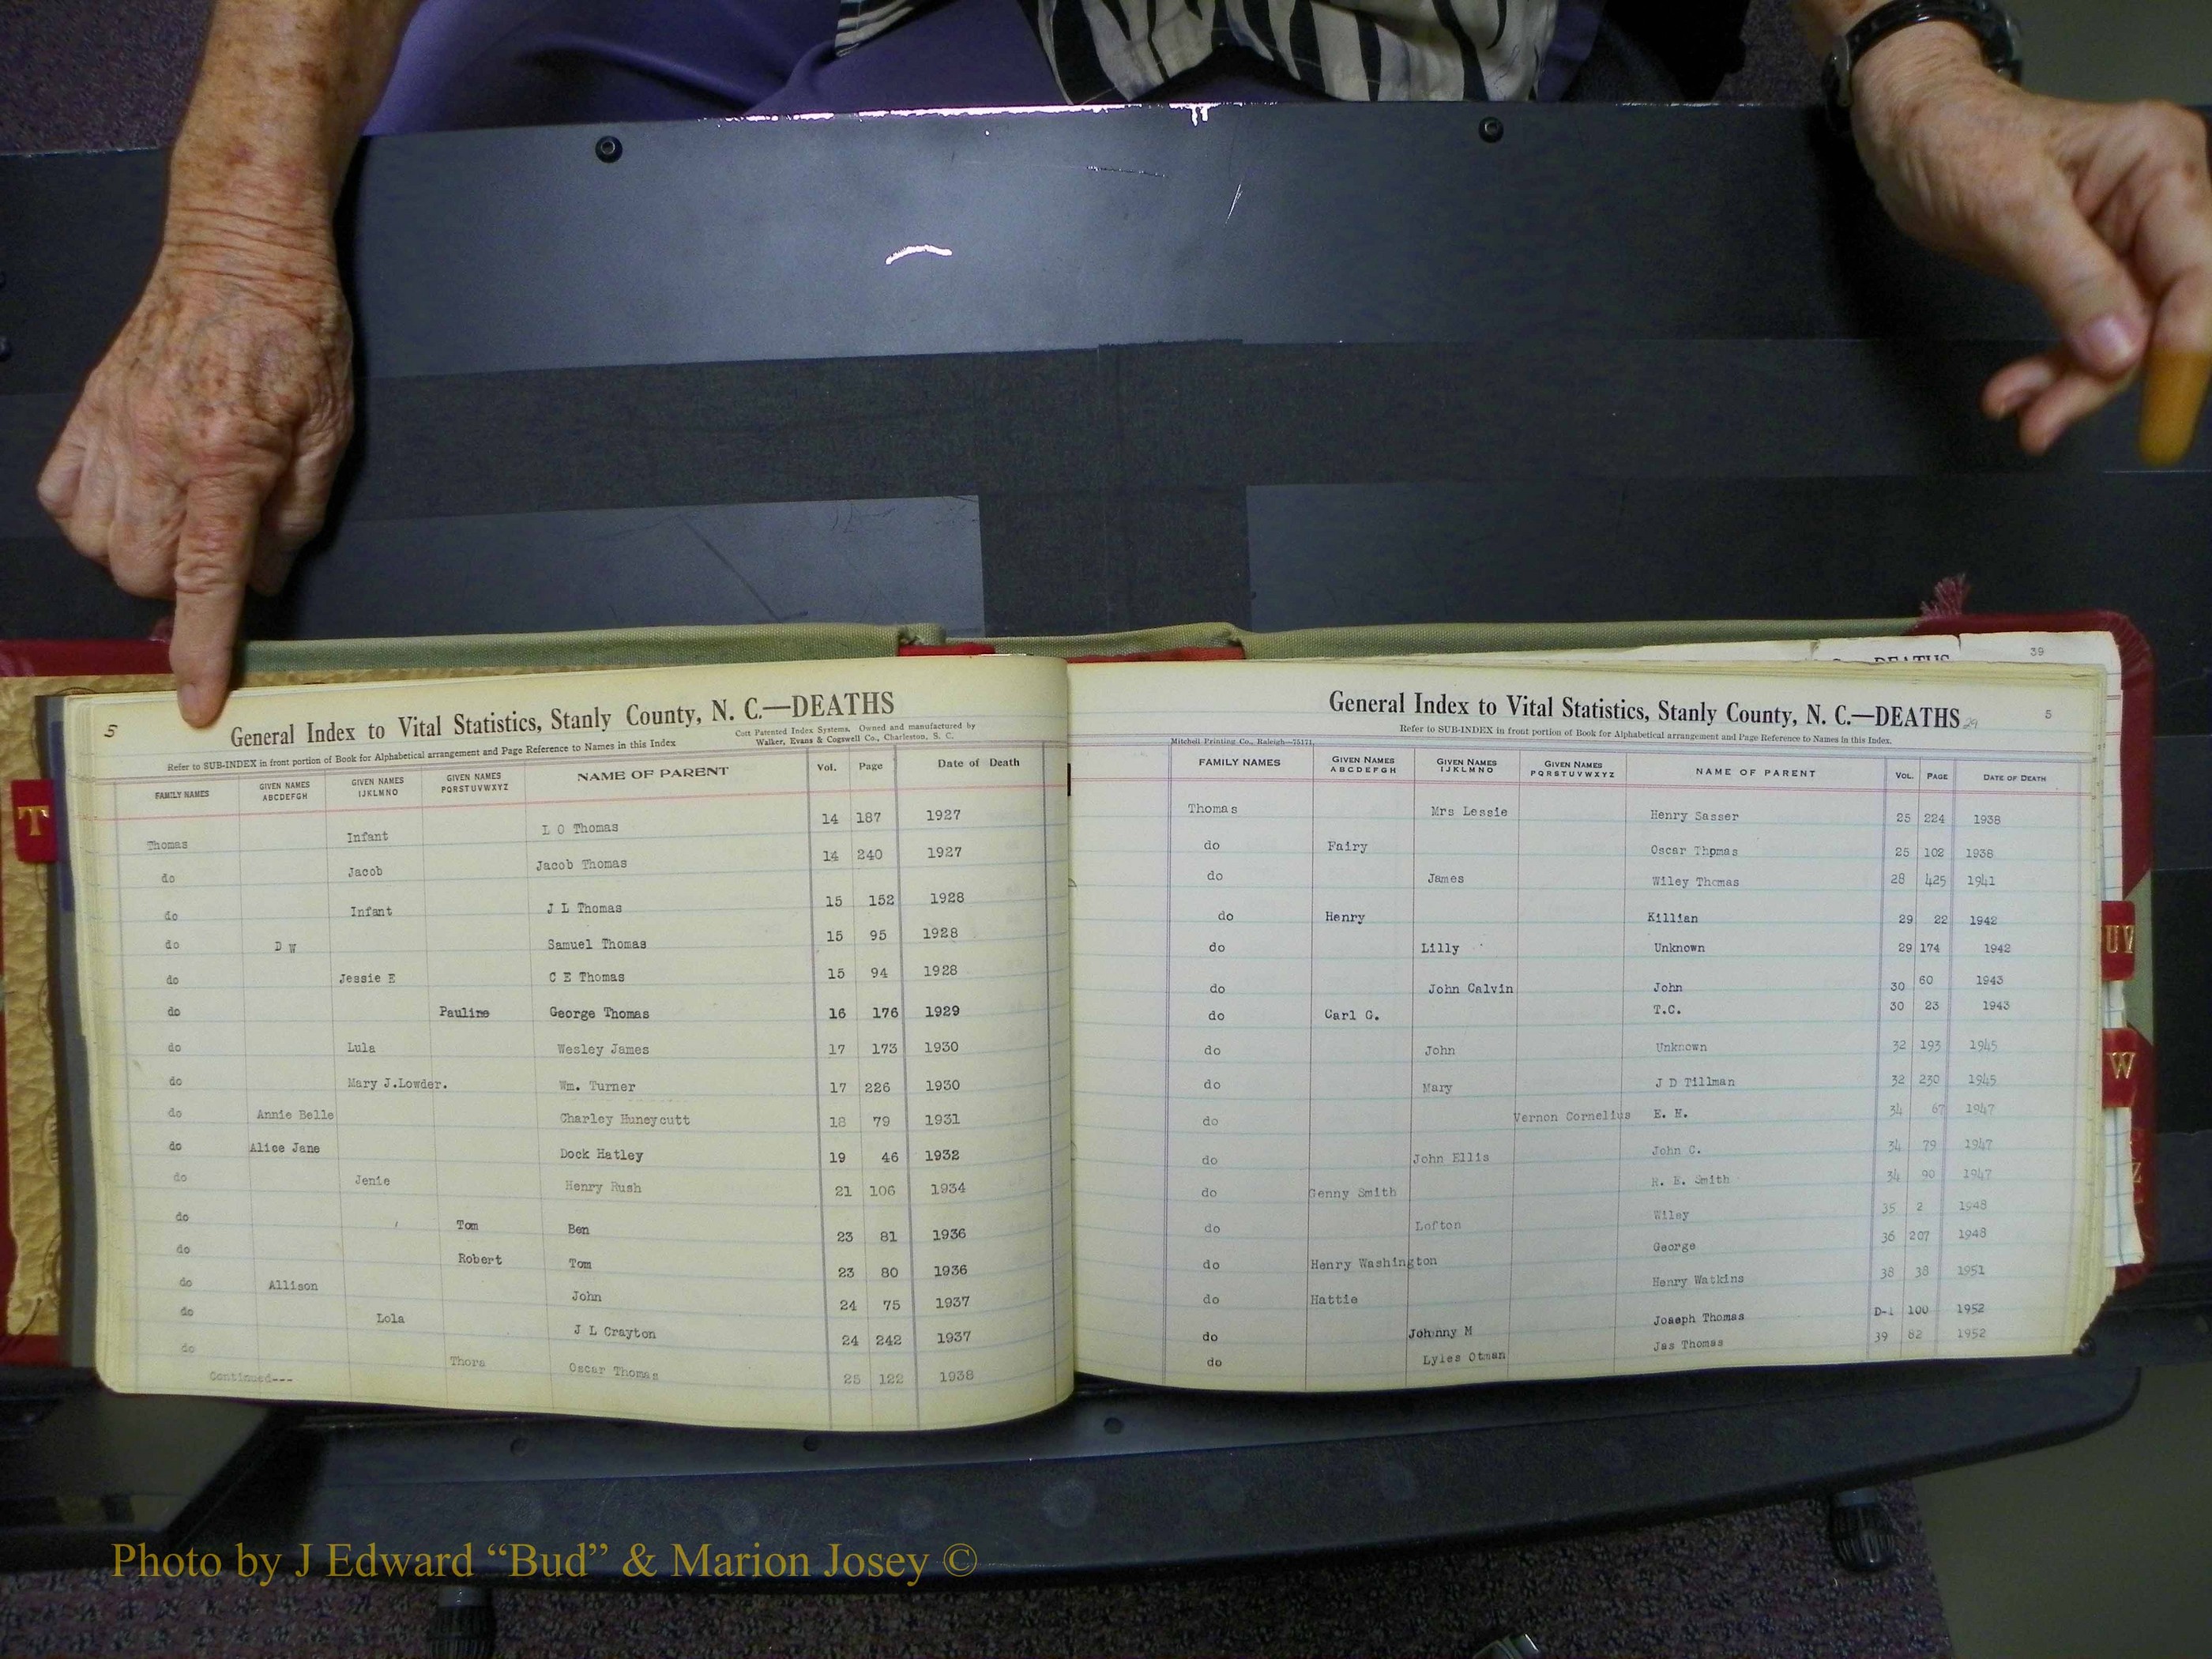 39
DEATHS
5
General Index to Vital Statistics, Stanly County, N. C.—DEATHS
Refer to SUB-INDEX in front portion of Book for Alphabetical arrangement and Page Reference to Names in this Index
Cott Patented Index Systems, Owned and manufactured by
Walker, Evans & Cogswell Co., Charleston, S. C.
FAMILY NAMES GIVEN NAMES ABCDEFGH GIVEN NAMES IJKLMNO GIVEN NAMES PQRSTUVWXYZ NAME OF PARENT Vol. Page Date of Death
Thomas Infant L O Thomas 14 187 1927
do Jacob Jacob Thomas 14 240 1927
do Infant J L Thomas 15 152 1928
do D W Samuel Thomas 15 95 1928
do Jessie E C E Thomas 15 94 1928
do Pauline George Thomas 16 176 1929
do Lula Wesley James 17 173 1930
do Mary J.Lowder. Wm. Turner 17 226 1930
do Annie Belle Charley Huneycutt 18 79 1931
do Alice Jane Dock Hatley 19 46 1932
do Jenie Henry Rush 21 106 1934
do Tom Ben 23 81 1936
do Robert Tom 23 80 1936
do Allison John 24 75 1937
do Lola J L Crayton 24 242 1937
do Thora Oscar Thomas 25 122 1938
Continued---
T
General Index to Vital Statistics, Stanly County, N. C.—DEATHS 29
5
Refer to SUB-INDEX in front portion of Book for Alphabetical arrangement and Page Reference to Names in this Index.
Mitchell Printing Co., Raleigh—75171
FAMILY NAMES GIVEN NAMES ABCDEFGH GIVEN NAMES IJKLMNO GIVEN NAMES PQRSTUVWXYZ NAME OF PARENT VOL. PAGE DATE OF DEATH
Thomas Mrs Lessie Henry Sasser 25 224 1938
do Fairy Oscar Thomas 25 102 1938
do James Wiley Thomas 28 425 1941
do Henry Killian 29 22 1942
do Lilly Unknown 29 174 1942
do John Calvin John 30 60 1943
do Carl G. T.C. 30 23 1943
do John Unknown 32 193 1945
do Mary J D Tillman 32 230 1945
do Vernon Cornelius E. H. 34 67 1947
do John Ellis John C. 34 79 1947
do Genny Smith R. E. Smith 34 90 1947
do Lofton Wiley 35 2 1948
do Henry Washington George 36 207 1948
do Hattie Henry Watkins 38 38 1951
do Johnny M Joseph Thomas D-1 100 1952
do Lyles Otman Jas Thomas 39 82 1952
UV
W
Z
Photo by J Edward “Bud” & Marion Josey ©